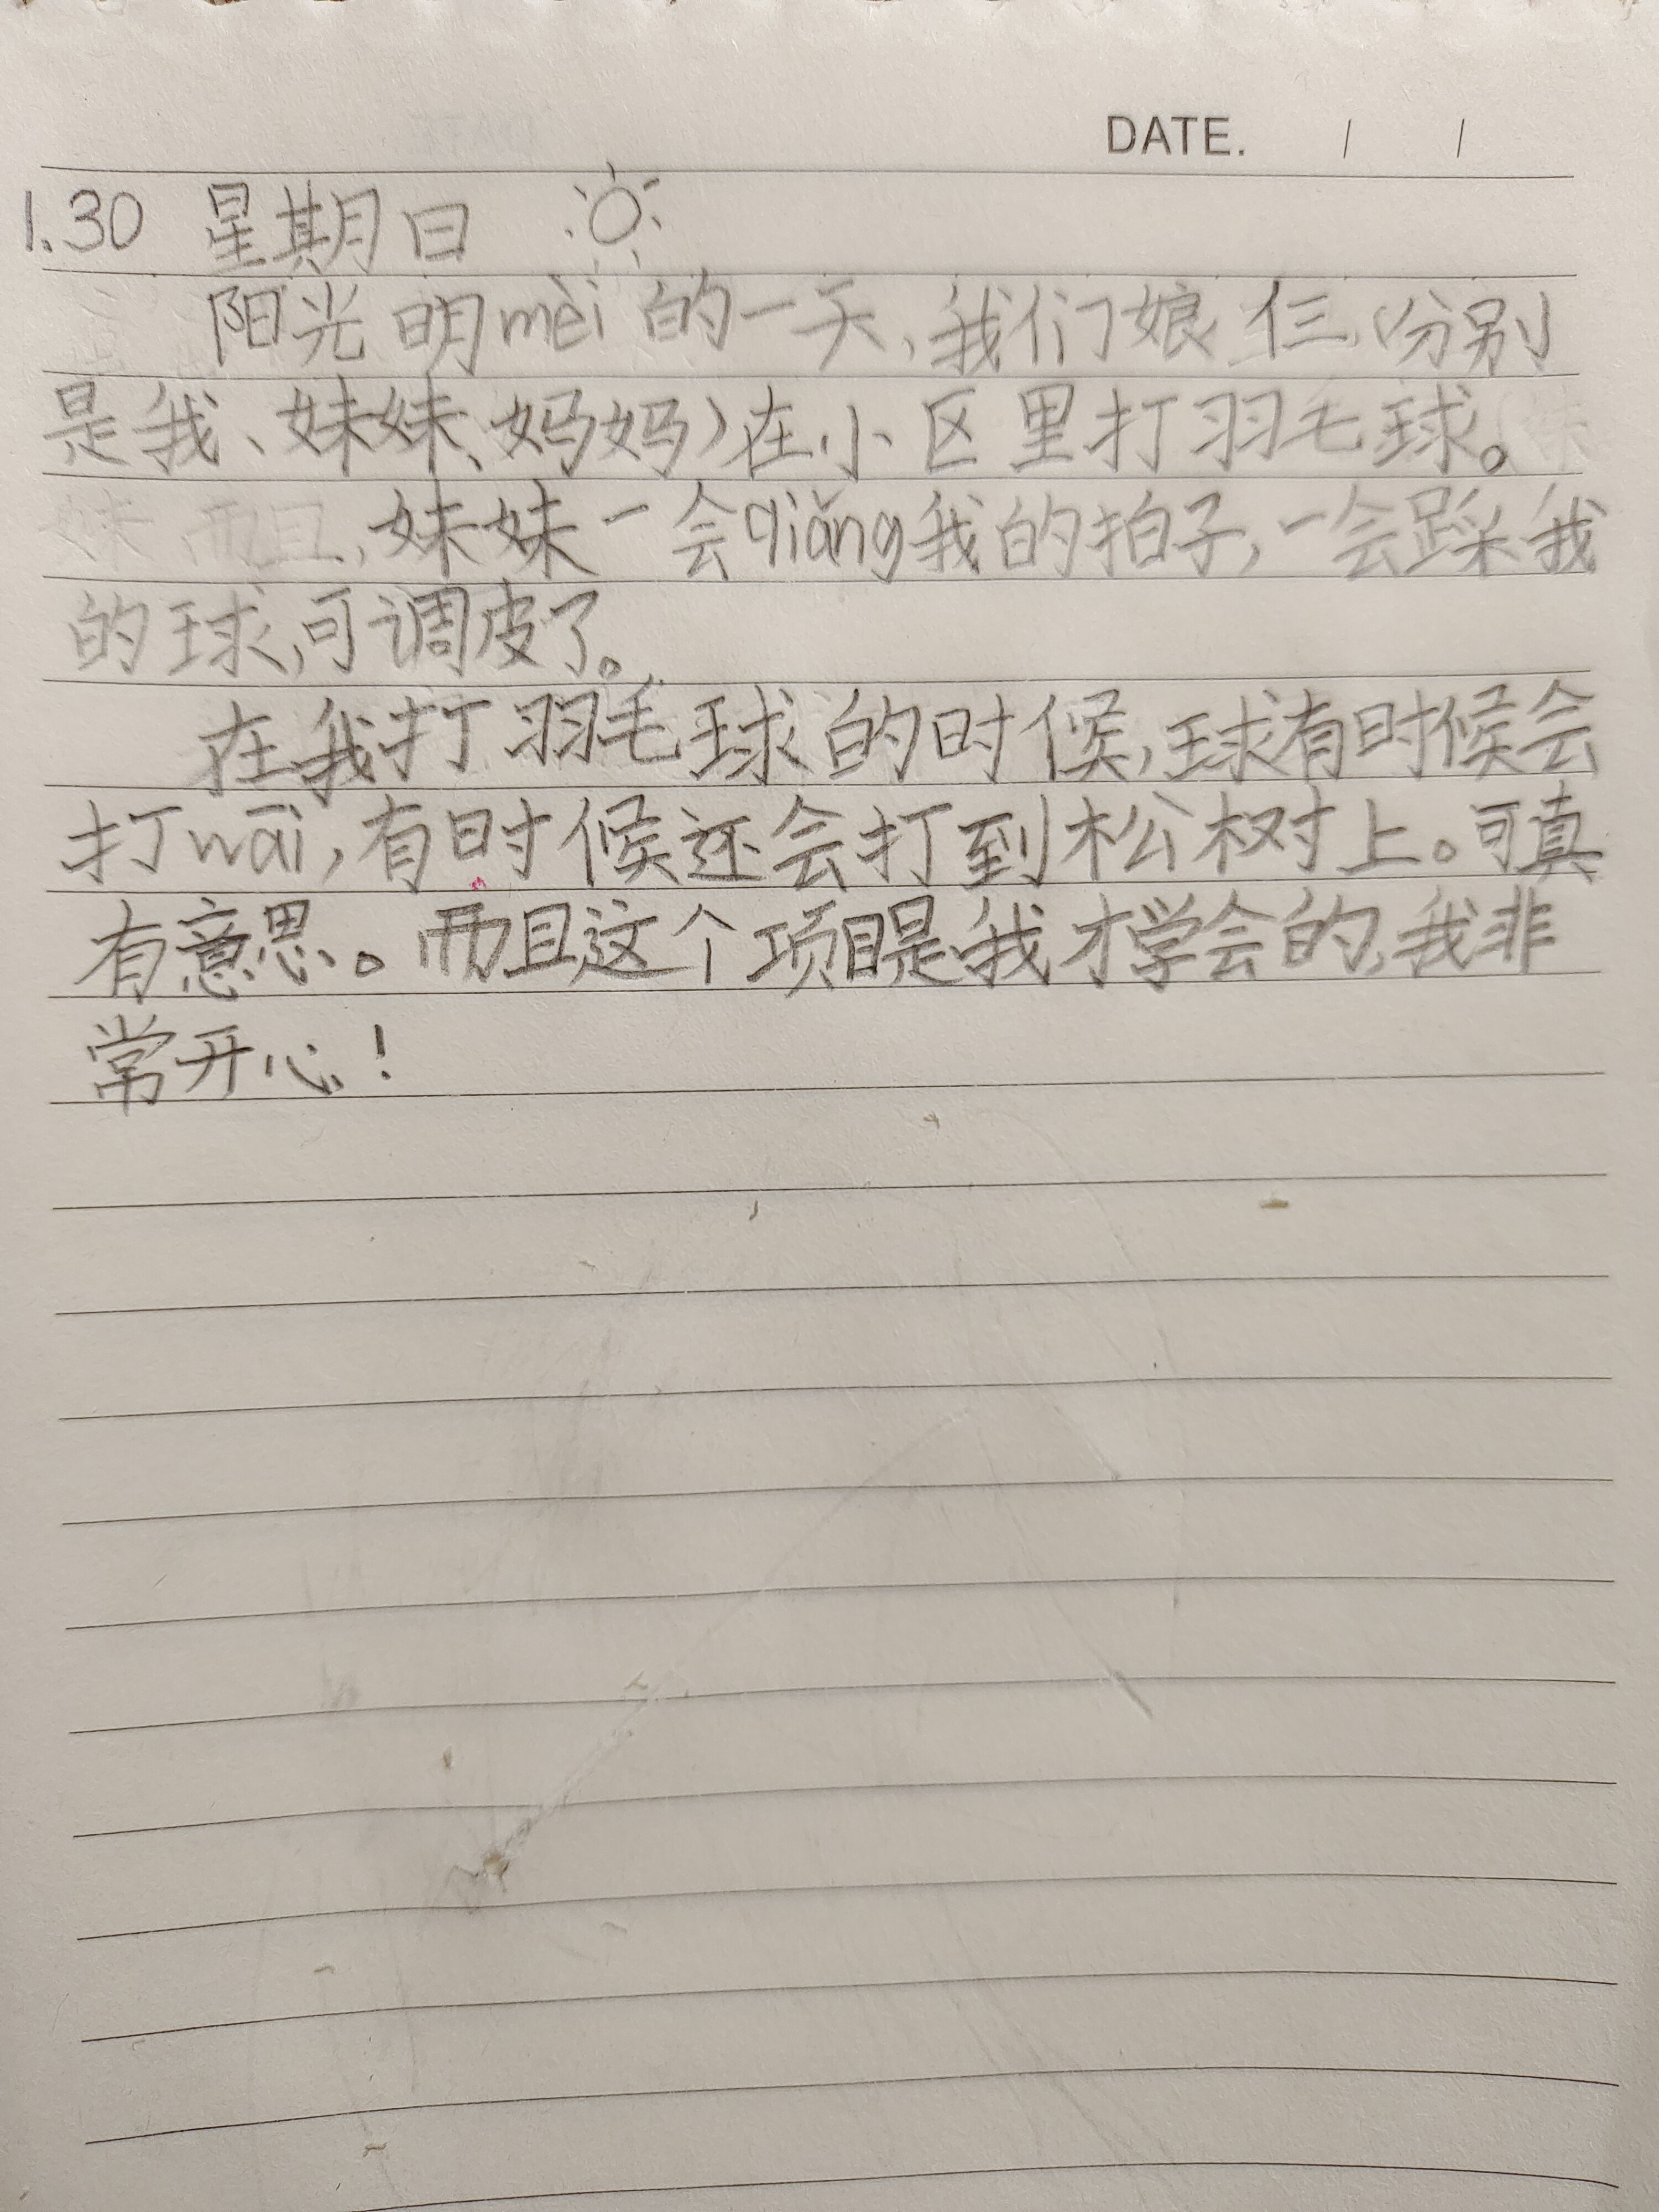 DATE. / /
1.30 星期日
阳光明mèi的一天,我们娘仨(分别
是我、妹妹、妈妈)在小区里打羽毛球。
妹而且,妹妹一会qiǎng我的拍子,一会踩我
的球,可调皮了。
在我打羽毛球的时候,球有时候会
打wāi,有时候还会打到松树上。可真
有意思。而且这个项目是我才学会的,我非
常开心!